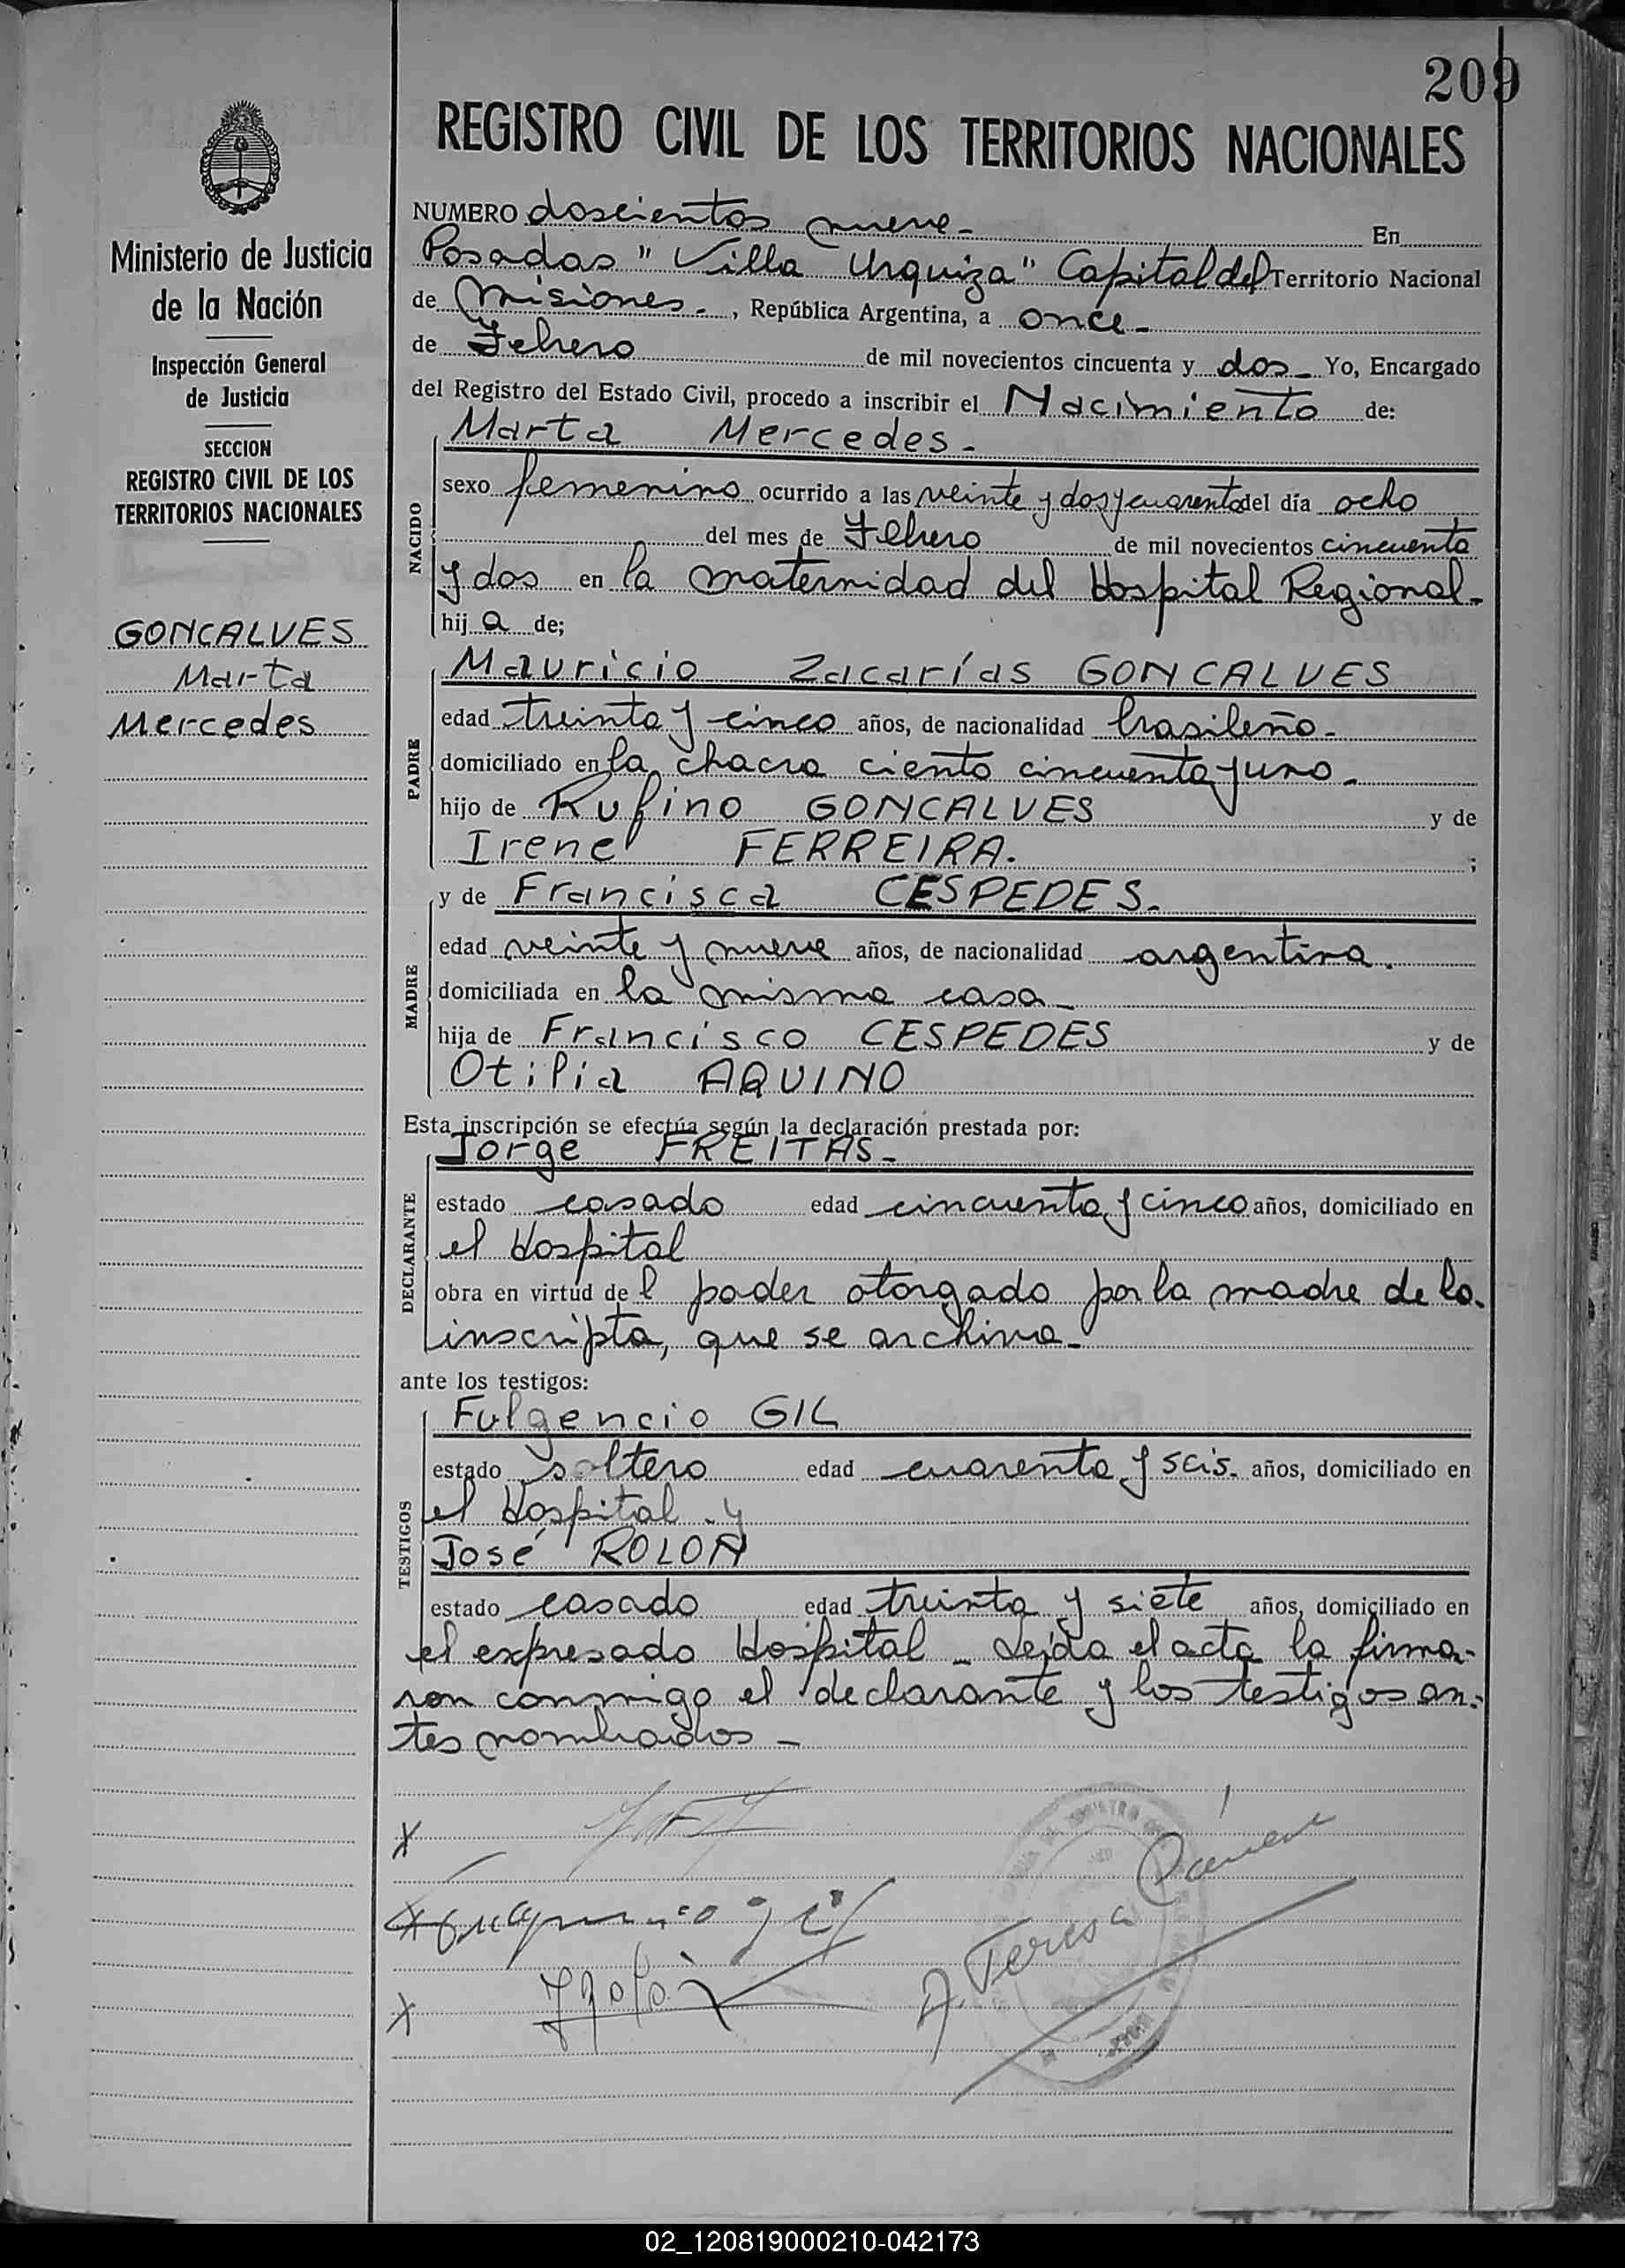 209
REGISTRO CIVIL DE LOS TERRITORIOS NACIONALES
Ministerio de Justicia
de la Nación
Inspección General
de Justicia
SECCION
REGISTRO CIVIL DE LOS
TERRITORIOS NACIONALES
GONCALVES
Marta
Mercedes
NUMERO doscientos nueve- En
Posadas "Villa Urquiza" Capital del Territorio Nacional
de Misiones-, República Argentina, a once-
de Febrero de mil novecientos cincuenta y dos- Yo, Encargado
del Registro del Estado Civil, procedo a inscribir el Nacimiento de:
Marta Mercedes-
NACIDO
sexo femenino ocurrido a las veinte y dos y cuarenta del día ocho
del mes de Febrero de mil novecientos cincuenta
y dos en la maternidad del Hospital Regional-
hij a de;
Mauricio Zacarías GONCALVES
PADRE
edad treinta y cinco años, de nacionalidad brasileño-
domiciliado en la chacra ciento cincuenta y uno-
hijo de Rufino GONCALVES y de
Irene FERREIRA. ;
y de Francisca CESPEDES-
MADRE
edad veinte y nueve años, de nacionalidad argentina.
domiciliada en la misma casa-
hija de Francisco CESPEDES y de
Otilia AQUINO
Esta inscripción se efectúa según la declaración prestada por:
Jorge FREITAS-
DECLARANTE
estado casado edad cincuenta y cinco años, domiciliado en
el Hospital
obra en virtud de l poder otorgado por la madre de la
inscripta, que se archiva-
ante los testigos:
Fulgencio GIL
TESTIGOS
estado soltero edad cuarenta y seis. años, domiciliado en
el Hospital -y
José ROLON
estado casado edad treinta y siete años, domiciliado en
el expresado Hospital- Leída el acta la firma-
ron conmigo el declarante y los testigos an-
tes nombrados-
A. Teresa
02_120819000210-042173